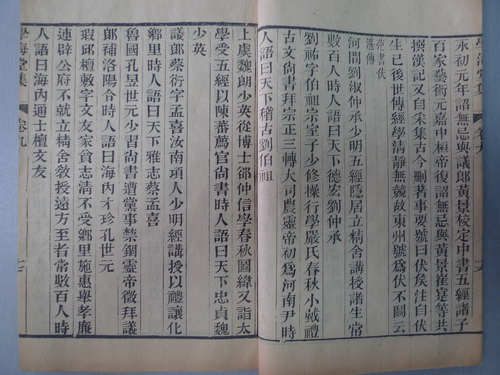 學海堂集
永初元年詔無忌與議郎黃景校定中書五經諸子
百家藝術元嘉中桓帝復詔無忌與黃景崔寔等共
撰漢記又自采集古今刪著事要號曰伏侯注自伏
生已後世傳經學清靜無競故東州號爲伏不鬭云
范書伏
湛傳
河間劉淑仲承少明五經隱居立精舍講授諸生常
數百人時人語曰天下德宏劉仲承
劉祐字伯祖宗室子少修操行學嚴氏春秋小戴禮
古文尚書拜宗正三轉大司農靈帝初爲河南尹時
人語曰天下稽古劉伯祖
上虞魏朗少英從博士郤仲信學春秋圖緯又詣太
學受五經以陳蕃薦官尚書時人語曰天下忠貞魏
少英
議郎蔡衍字孟喜汝南項人少明經講授以禮讓化
鄉里時人語曰天下雅志蔡孟喜
魯國孔昱世元少習尚書遭黨事禁錮靈帝徵拜議
郎補洛陽令時人語曰海內才珍孔世元
瑕邱檀敷字文友家貧志清不受鄉里施惠舉孝廉
連辟公府不就立精舍敎授遠方至者常數百人時
人語曰海內通士檀文友
學海堂集 卷九